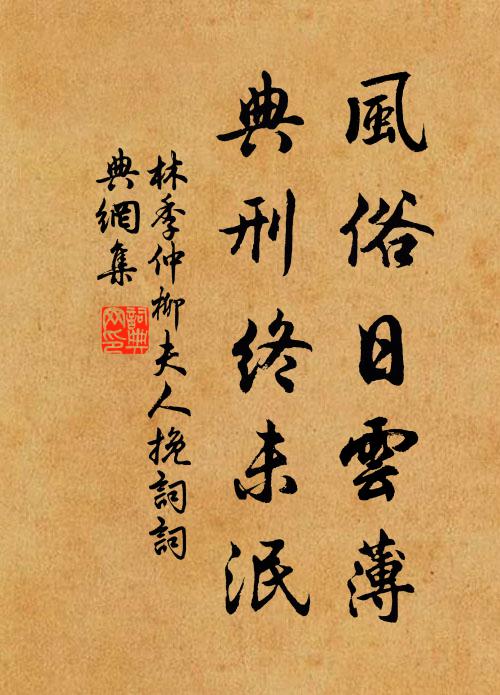 風俗日雲薄
典刑終未泯
林季仲柳夫人挽詞詞
典網集
詞典網印